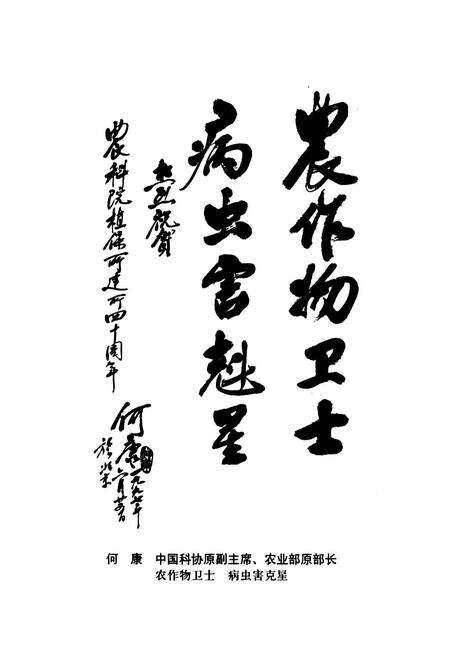 農作物卫士
病虫害魁星
热烈祝贺
農科院植保所建所四十周年
何康
一九九七年
於北京
何 康 中国科协原副主席、农业部原部长
农作物卫士 病虫害克星